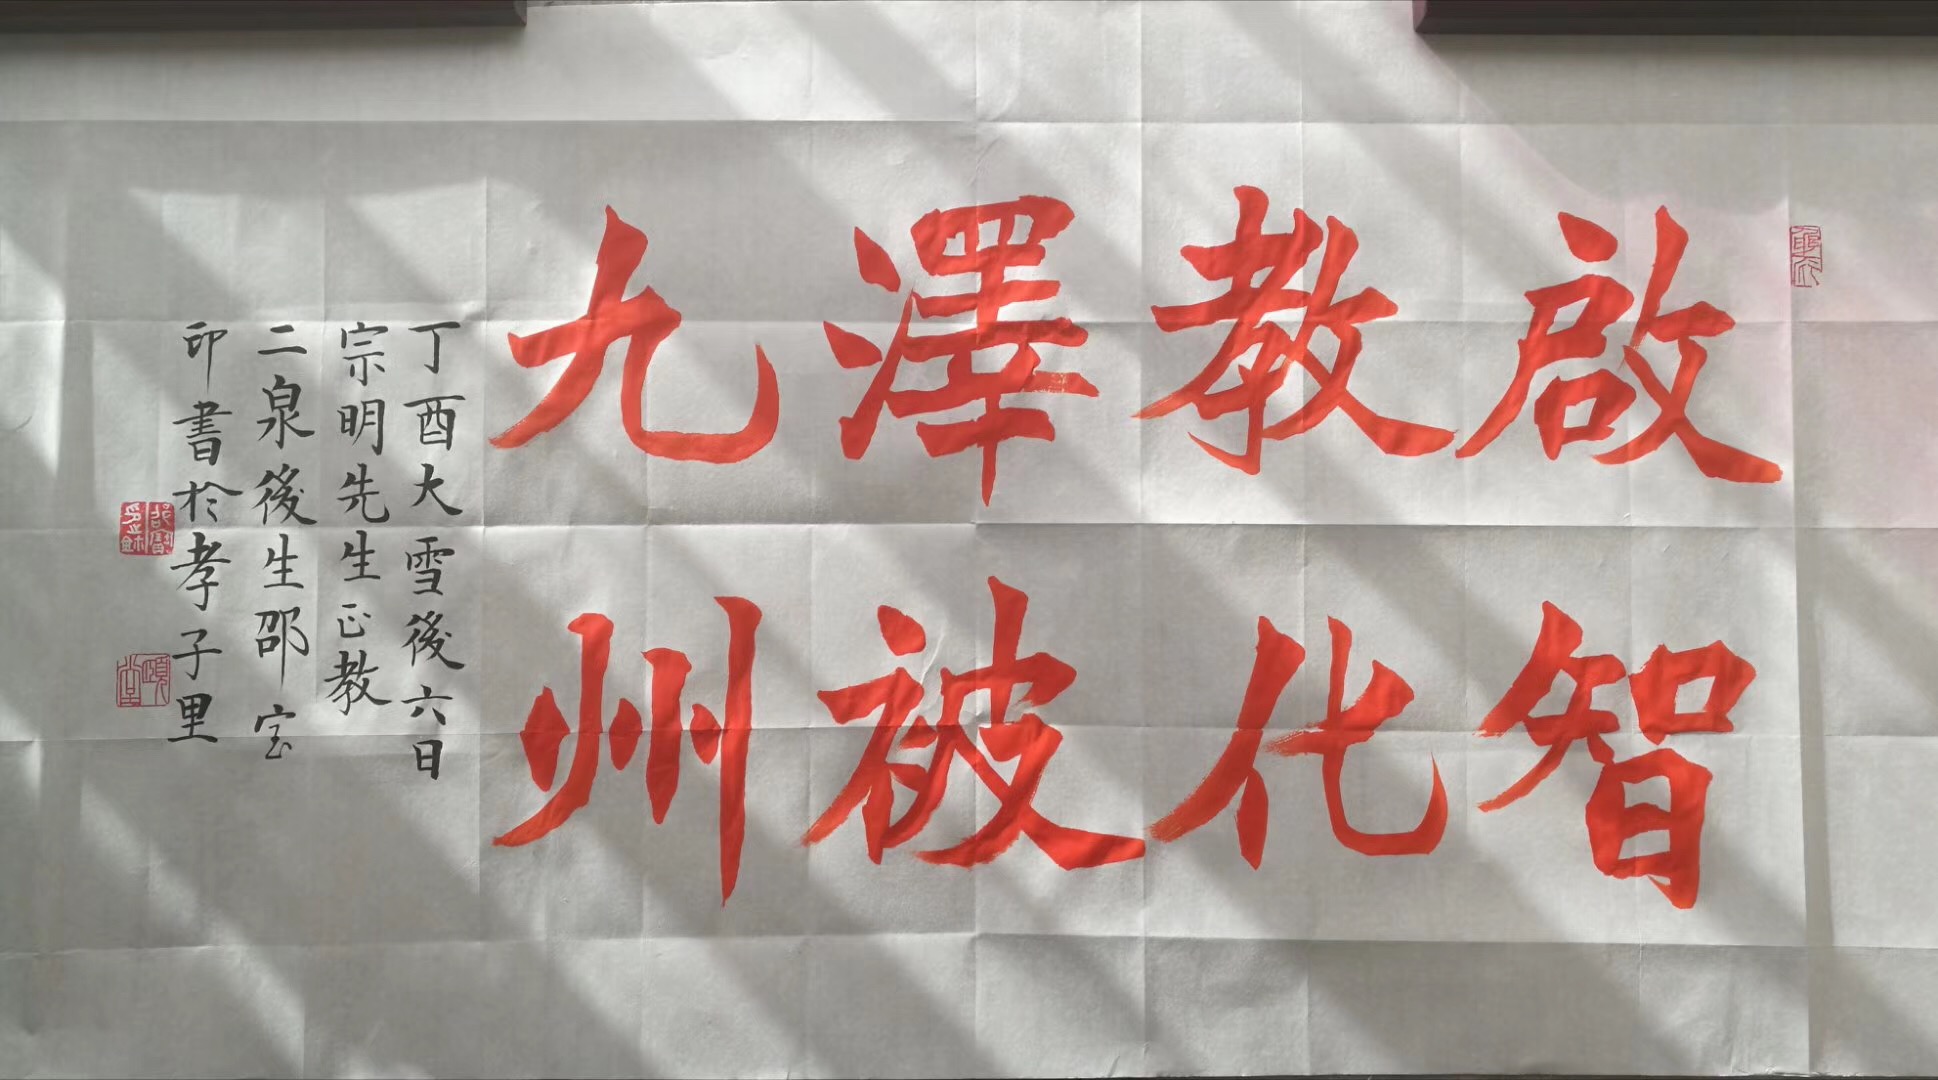 啟智
教化
澤被
九州
丁酉大雪後六日
宗明先生正教
二泉後生邵宝
印書於孝子里